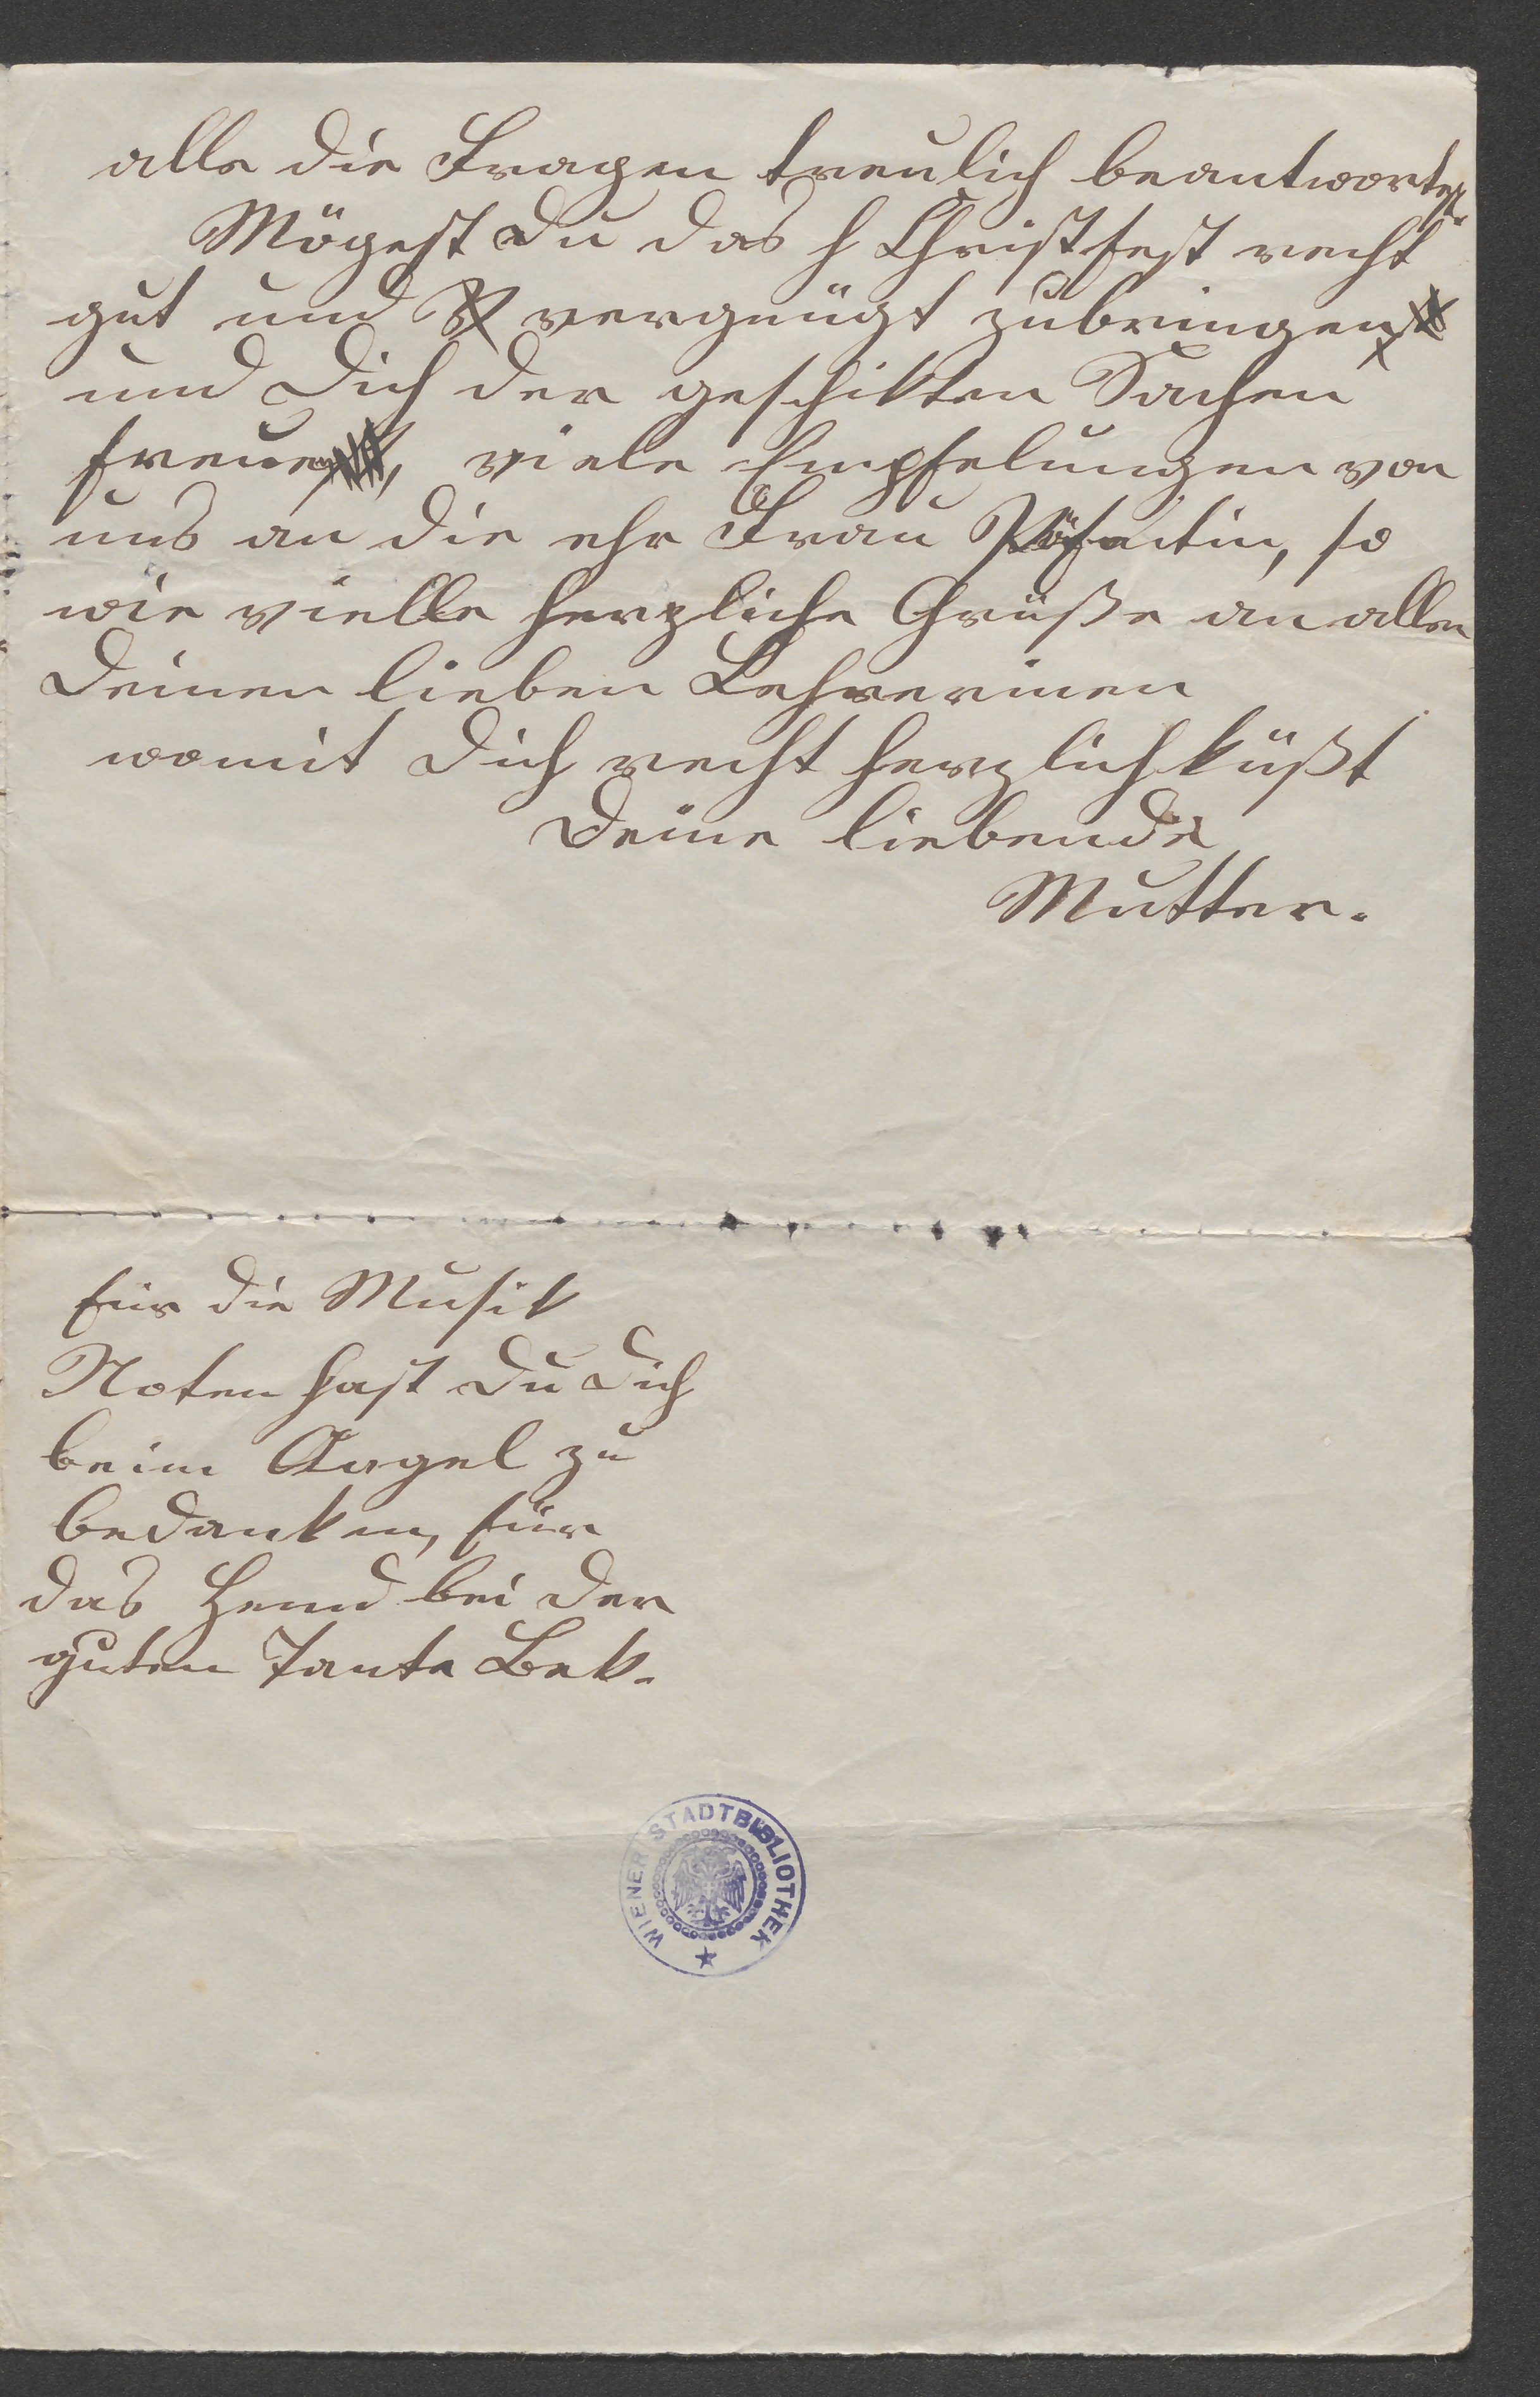 alle die Fragen treulich beantwortest.
Mögest Du das h Christfest recht
gut und vergnügt zubringen
und Dich der geschikten Sachen
freuen, viele Empfelungen von
uns an die ehr Frau Präfectin, so
wie vielle herzliche Grüße an allen
Deinen lieben Lehrerinen
womit Dich recht herzlich küßt
Deine liebende
Mutter.
für die Musik
Noten hast Du Dich
beim Angel zu
bedanken, für
das Hemd bei der
guten Tante Bek.
WIENER STADTBIBLIOTHEK